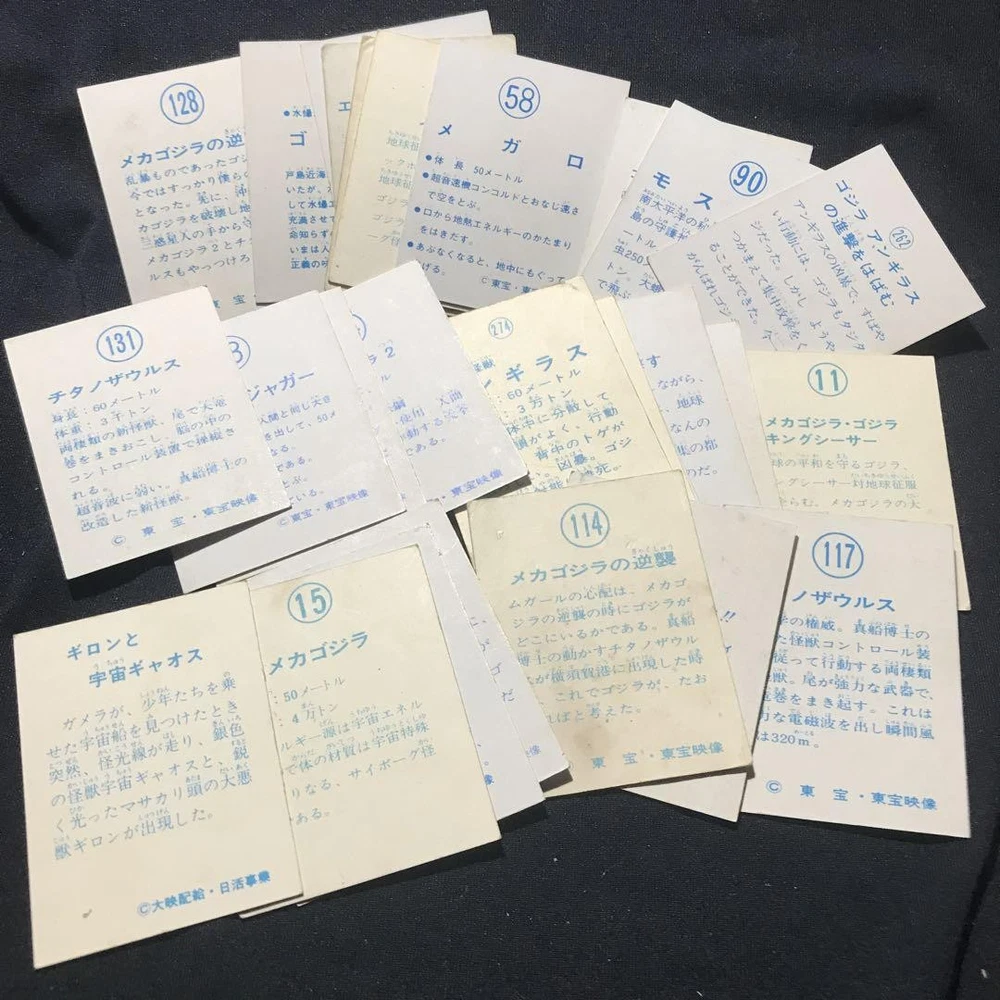 128
メカゴジラの逆
乱暴ものであったゴジ
今ではすっかり僕らの
となった。先に、沖
カゴジラを破壊し地
三惑星人の手から守
メカゴジラ2とチ
ルスもやっつけろ
東 宝
●水爆
ゴ
戸島近海
いたが、水
して水爆エ
充満させて
命知らず
いまは人
正義の味
エ
地球征
ックホ
地球征
ゴジラ
ーグ怪
58
メガロ
●体 長 50メートル
●超音速機コンコルドとおなじ速さ
で空をとぶ。
●口から地熱エネルギーのかたまり
をはきだす。
●あぶなくなると、地中にもぐって
げる。
©東宝・東宝映
90
モス
南太平洋の
島の守護
ートル
虫250
トン。大
で飛
262
ゴジラ アンギラス
の進撃をはばむ
アンギラスの凶暴で、すばや
い行動には、ゴジラもタジタ
ジだった。しかし、ようや
つかまえて集中攻撃をく
ることができた。今
がんばれゴジ
131
チタノザウルス
身長:60メートル
体重:3万トン
両棲類の新怪獣。尾で大竜
巻をまきおこし、脳の中の
コントロール装置で操縦さ
れる。
超音波に弱い。真船博士の
改造した新怪獣。
© 東 宝・東宝映像
3
ジャガー
人間と同じ大き
を出して、50メ
である。
ている。
である。
©東宝・東宝映像
ラ2
ル
使用 人間
動する次
である。
・東宝映像
274
怪獣
ンギラス
:60メートル
:3万トン
体中に分散して
頭がよく、行動
背中のトゲが
凶暴。ゴジ
す
ながら、
地球
なんの
集の都
のだ。
11
メカゴジラ・ゴジラ
キングシーサー
球の平和を守るゴジラ、
ングシーサー対地球征服
たくらむ、メカゴジラの大
ギロンと
宇宙ギャオス
ガメラが、少年たちを乗
せた宇宙船を見つけたとき
突然、怪光線が走り、銀色
の怪獣宇宙ギャオスと、鋭
く光ったマサカリ頭の大悪
獣ギロンが出現した。
©大映配給・日活事業
15
メカゴジラ
:50メートル
:4万トン
ルギー源は宇宙エネル
で体の材質は宇宙特殊
りなる、サイボーグ怪
ある。
114
メカゴジラの逆襲
ムガールの心配は、メカゴ
ジラの逆襲の時にゴジラが
どこにいるかである。真船
博士の動かすチタノザウル
スが横須賀港に出現した時
これでゴジラが、たお
ればと考えた。
東 宝・東宝映像
!!
117
ノザウルス
学の権威。真船博士の
た怪獣コントロール装
従って行動する両棲類
獣。尾が強力な武器で、
竜巻をまき起す。これは
力な電磁波を出し瞬間風
は320m。
© 東 宝・東宝映像